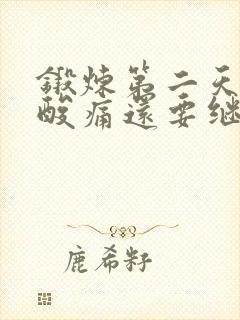 鍛煉第二天
酸痛還要继
鹿希籽